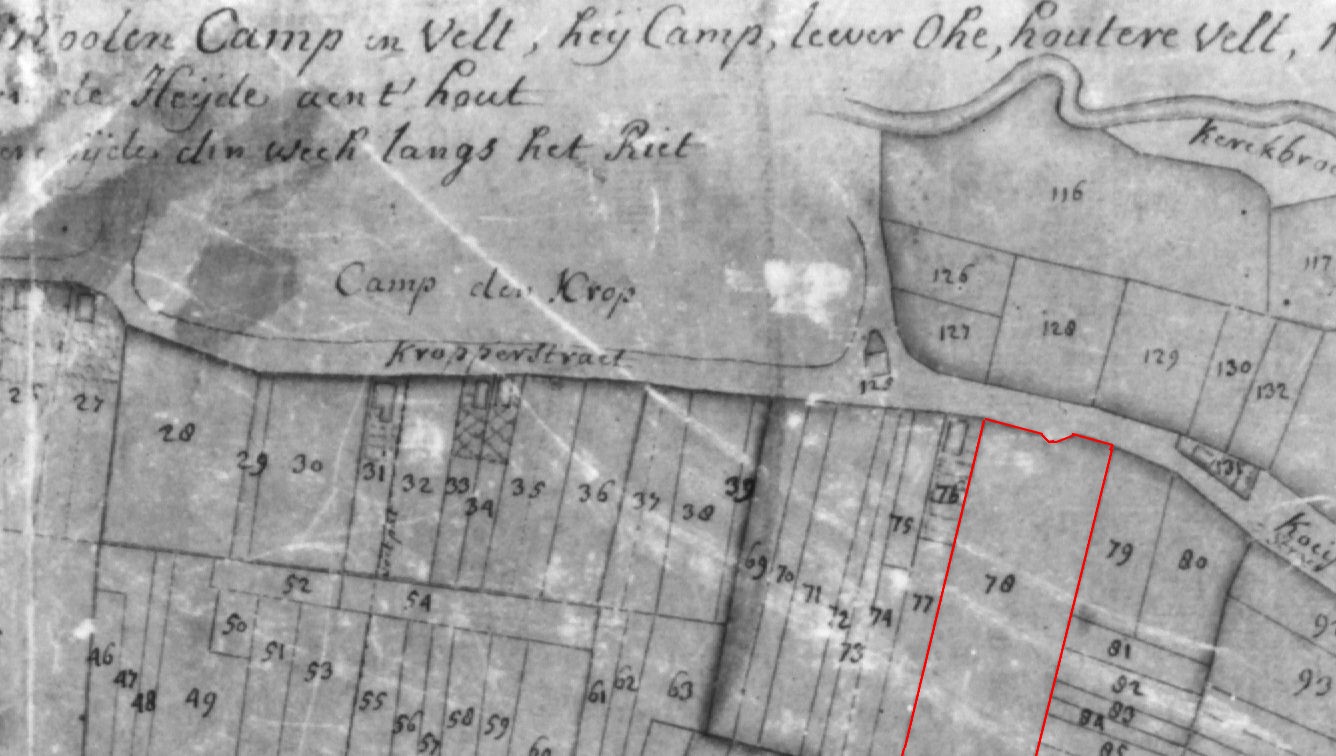 Camp in Velt, heij Camp, leewer Ohe, houtere Velt,
de Heijde aent hout
den wech langs het Riet
Kerckbroe
116
117
126
Camp den Krop
127
128
129
130
132
Kropperstraet
125
25
27
28
29
30
31
32
33
34
35
36
37
38
39
75
76
135
Koey
69
70
71
72
73
74
77
78
79
80
52
54
50
51
53
46
47
48
49
55
56
57
58
59
60
61
62
63
81
82
83
84
85
93